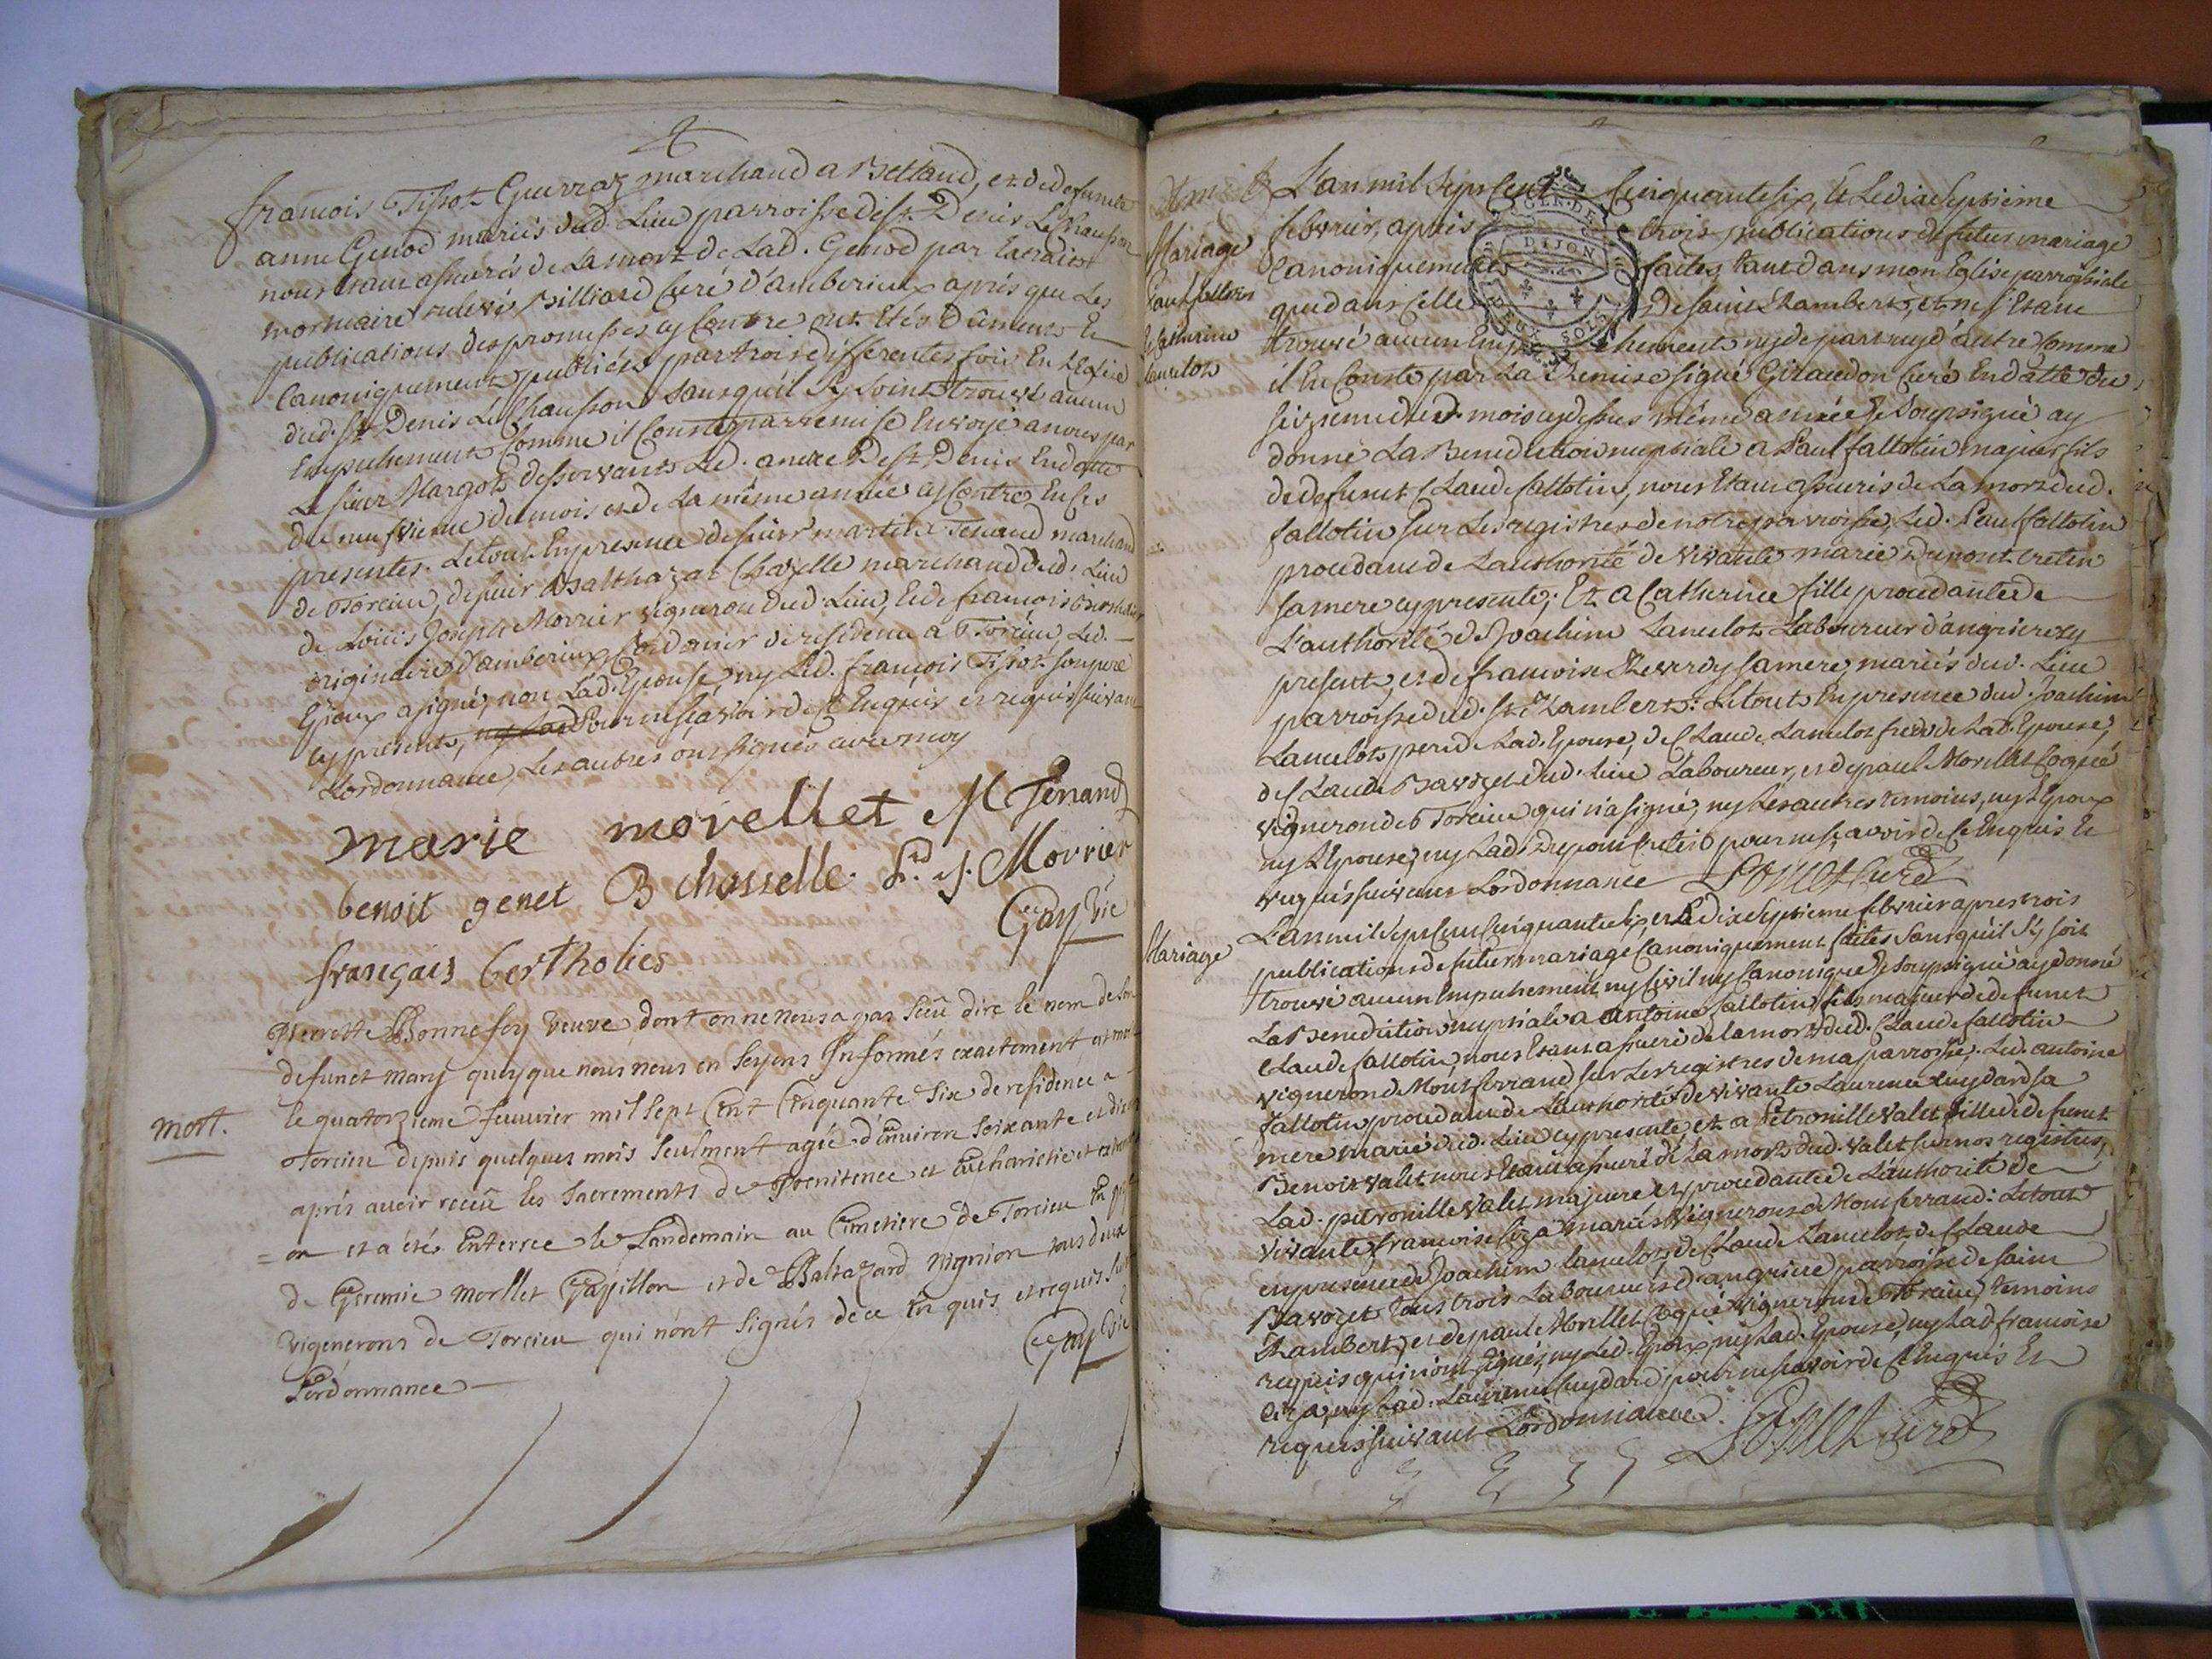 françois Tissot Guerraz marchand a Bettand, et de defuncte
anne Genod mariés dud. Lieu parroisse de St. Denis Le Chausson
nous étant assurés de La mort de Lad. Genod par Extrait
mortuaire Billiard Curé d'amberieux après que Les
publications des promesses cy Contre ont Etés Düement Et
Canoniquement publiées par trois differentes fois En L'Eglise
dud. St. Denis Le Chausson sans qu'il s'y soint trouvé aucun
Empechement Comme il Conste par remise Envoyé a nous par
Le sieur Margot desservant Led. De St. Denis En datte
du neufvieme du mois et de La même année cy Contre En Ces
presentes. Le tout En presence de sieur martin Tenand marchand
de Torcieu, de sieur Balthazar Chazelle marchand dud. Lieu
de Loüis Joseph Morrier vigneron dud. Lieu, Et de francois
originaire d'amberieux Cordonier de residence a Torcieu, Led.
Epoux a signé, non Lad. Epouse ny Led. françois Tissot son pere
cy present, pour ne sçavoir de ce Enquis et requis suivant
L'ordonnance, Les autres ont signés avec moy
marie morellet M Tenand
benoit genet B chasselle. L. J. Morrier
français bertholier
Gay vic
Pierrette Bonnefoy veuve, dont on ne nous a pas sceü dire le nom de son
defunct mary quoyque nous nous en soyons Informés exactement, est morte
mort.
le quatorzieme fevurier mil sept Cent Cinquante Six de residence a
Torcieu depuis quelques mois seulment agée d'Environ soixante et dix
après avoir receü les sacrements de Poenitence et Eucharistie et extreme
= on et a étés Enterree le Landemain au Cimetiere de Torcieu En
de Geremie morllet Papillon et de Baltazard vignion tous deux
vignerons de Torcieu qui n'ont signés de ce En quis et requis
L'ordonnance
Gay vic
L'an mil sept Cent Cinquante six, Et Le dix septieme
febvrier, apres trois publications de futur mariage
Canoniquement faites tant dans mon Eglise parroissiale
que dans Celle De saint Rambert, et ne s'Etant
trouvé aucun Empechement ny de part ny d'autre Comme
il En Conste par La Remise signé Giraudon Curé En datte du
seizieme dud. mois cy dessus même année Je soussigné ay
donné La Benediction nuptiale a Paul fallotin majeur fils
de defunct Claude fallotin, nous Etant assurés de La mort dud.
fallotin sur Les registres de notre parroisse, Led. Paul fallotin
procedant de L'authorité de vivante marie Dupont Cretin
sa mere cy presente; Et a Catherine fille procedante de
L'authorité de Joachim Lancelot Laboureur d'angrieres cy
present, et de francoise sa mere, mariés dud. Lieu
parroisse dud. St. Rambert: Le tout En presence dud. Joachim
Lancelot pere de Lad. Epouse, de Claude Lancelot frere de Lad. Epouse,
de Claude Bavozet dud. lieu Laboureur, et de paul Morellet Coqué
vigneron de Torcieu qui n'a signé, ny Les autres temoins, ny L'Epoux
ny L'Epouse, ny Lad. Dupont Cretin pour ne sçavoir de ce Enquis Et
requis suivant L'ordonnance
Mariage
Paul fallotin
Et Catherine
Lancelot
Mariage
L'an mil sept Cent Cinquante six, et Le dix septieme febvrier apres trois
publications de futur mariage Canoniquement faites sans qu'il s'y soit
trouvé aucun Empechement ny Civil ny Canonique Je soussigné ay donné
La Benediction nuptiale a antoine fallotin fils majeur de defunct
Claude fallotin, nous Etant assuré de la mort dud. Claude fallotin
vigneron de Montferrand sur Les registres de ma parroisse. Led. antoine
fallotin procedant de L'authorité de vivante Laurence Cuydard sa
mere marié dud. Lieu cy presente et a Petronille valet fille de defunct
Benoit valet nous Etant assuré de La mort dud. valet sur nos registres,
Lad. petronille valet majeure et procedante de L'authorité de
vivante francoise mariés vignerons de Montferrand: Le tout
en presence de Joachim lancelot, de Claude Lancelot, de Claude
Bavozet tous trois Laboureurs d'angriere parroisse de saint
Rambert, et de paul Morellet Coqué vigneron de Torcieu temoins
requis qui n'ont signés, ny Led. Epoux ny Lad. Epouse, ny Lad. francoise
ny Lad. Laurence Cuydard pour ne sçavoir de ce Enquis Et
requis suivant L'ordonnance.